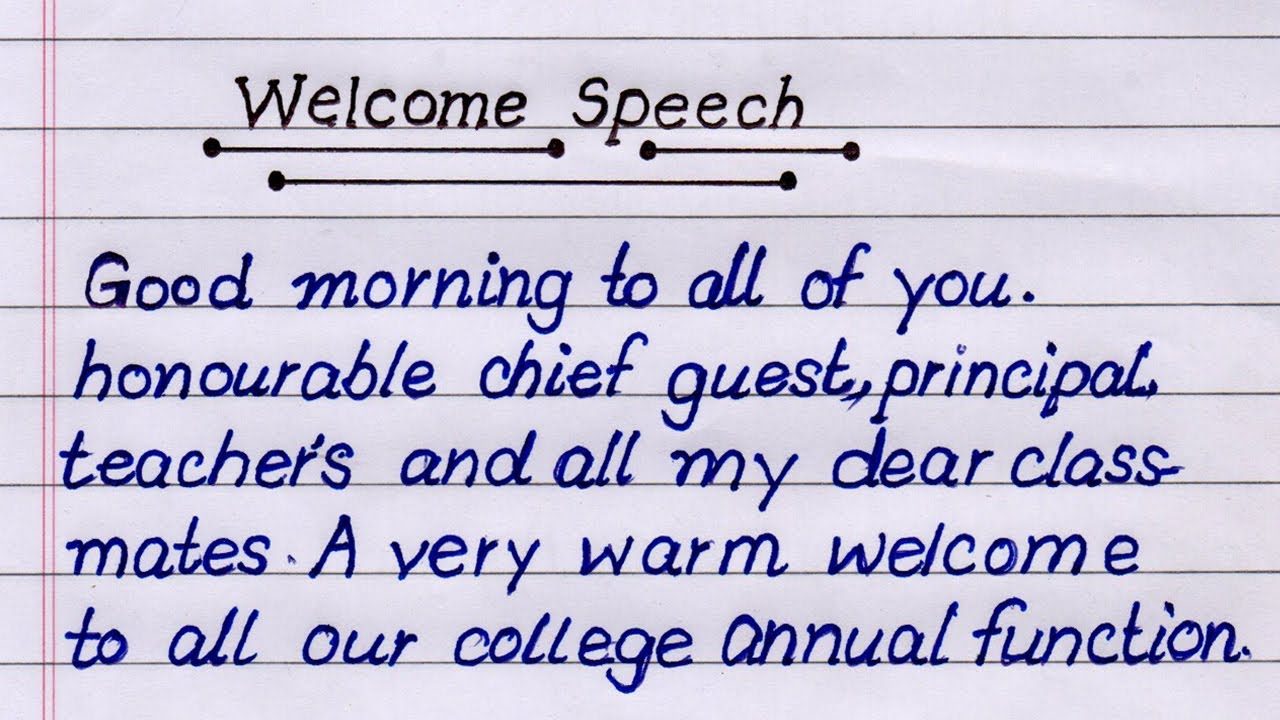 Welcome Speech
Good morning to all of you.
honourable chief guest, principal,
teacher's and all my dear class-
mates. A very warm welcome
to all our college annual function.